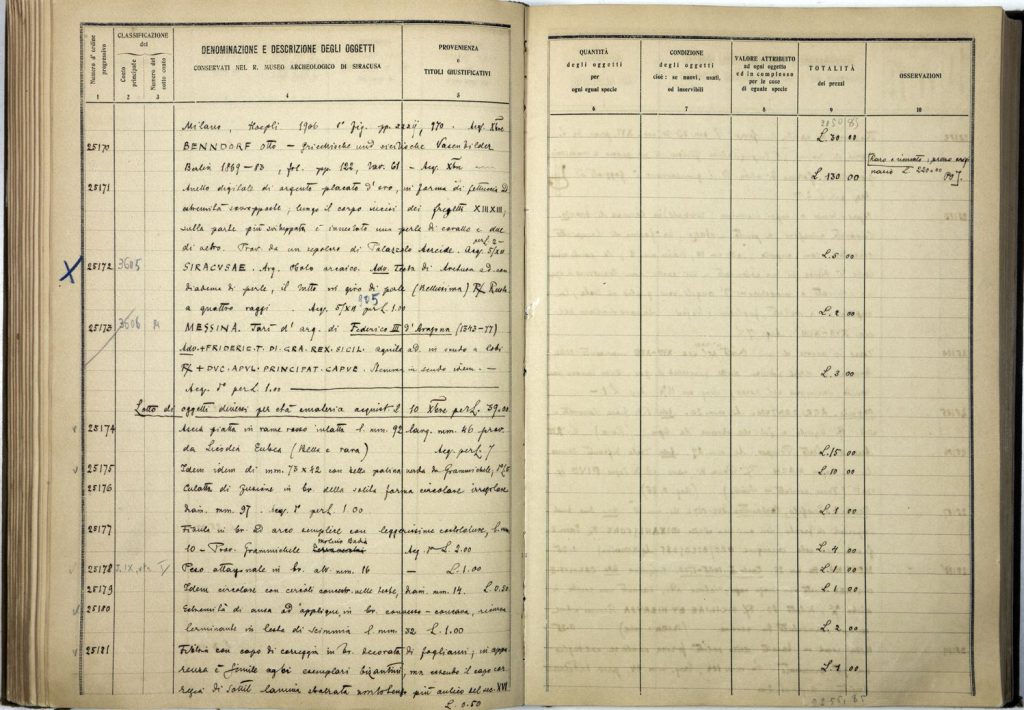 Numero d'ordine progressivo
CLASSIFICAZIONE del
Conto principale
Numero del sotto conto
DENOMINAZIONE E DESCRIZIONE DEGLI OGGETTI
CONSERVATI NEL R. MUSEO ARCHEOLOGICO DI SIRACUSA
PROVENIENZA
e
TITOLI GIUSTIFICATIVI
1 2 3 4 5
Milano, Hoepli 1906 8° fig. pp. 970. Acq. Xbre
25170 BENNDORF Otto – Griechische und sicilische Vasenbilder
Berlin 1869–83, fol. pp. 122, tav. 61 – Acq. Xbre
25171 Anello digitale di argento placato d'oro, in forma di fettuccia ad
estremità sovrapposte; lungo il corpo incisi dei fregetti XIIXIII;
sulla parte più sviluppata è innestata una perla di corallo e due
di vetro. Prov. da un sepolcro di Palazzolo Acreide. Acq. 5/XII
per L. 2–
X 25172 3605 SIRACUSAE. Arg. Obolo arcaico. Ado. Testa di Aretusa a d. con
diadema di perle, il tutto in giro di perle (Bellissima) R/ Ruota
a quattro raggi. Acq. 5/XII 905 per L. 1.00
25173 3606 M MESSINA. Tarì d'arg. di Federico III d'Aragona (1343–77)
Ado. + FRIDERIC. T. DI. GRA. REX. SICIL. aquila ad. in scudo a lobi
R/ + DVC. APVL. PRINCIPAT. CAPVE. in scudo idem. –
Acq. 1° per L. 1.00
Lotto di oggetti diversi per età e materia acquist. 10 Xbre per L. 39.00
25174 Ascia piatta in rame rosso intatta l. mm. 92 larg. mm. 46 prov.
da Licodia Eubea (Bella e rara) Acq. per L. 7
25175 Idem idem di mm. 73 x 42 con bella patina verde da Grammichele, L. 5
25176 Culatta di fusione in br. della solita forma circolare irregolare
diam. mm. 97. Acq. 1° per L. 1.00
25177 Fibula in br. ad arco semplice con leggerissime costolature, l. mm.
10 – Prov. Grammichele Molino Badia Acq. 1° L. 2.00
25178 Peso ottagonale in br. alt. mm. 16 – L. 1.00
25179 Idem circolare con cerchi concentr. nelle teste, diam. mm. 14. L. 0.50
25180 Estremità di ansa ad'applique, in br. concavo-convessa,
terminante in testa di scimmia l. mm. 32 L. 1.00
25181 Fibbia con capo di correggia in br. decorata di fogliami; in appa
renza è simile agli esemplari bizantini, ma essendo il capo cor
reggia di sottil lamina più antico del sec. XVI
L. 0.50
QUANTITÀ
degli oggetti
per
ogni egual specie
CONDIZIONE
degli oggetti
cioè: se nuovi, usati,
od inservibili
VALORE ATTRIBUITO
ad ogni oggetto
ed in complesso
per le cose
di eguale specie
TOTALITÀ
dei prezzi
OSSERVAZIONI
6 7 8 9 10
L. 30 00
L. 130 00
Raro e ricercato; prezzo orig
nario L. 220.00
L. 5 00
L. 2 00
L. 3 00
L. 15 00
L. 10 00
L. 1 00
L. 4 00
L. 1 00
L. 1 00
L. 2 00
L. 1 00